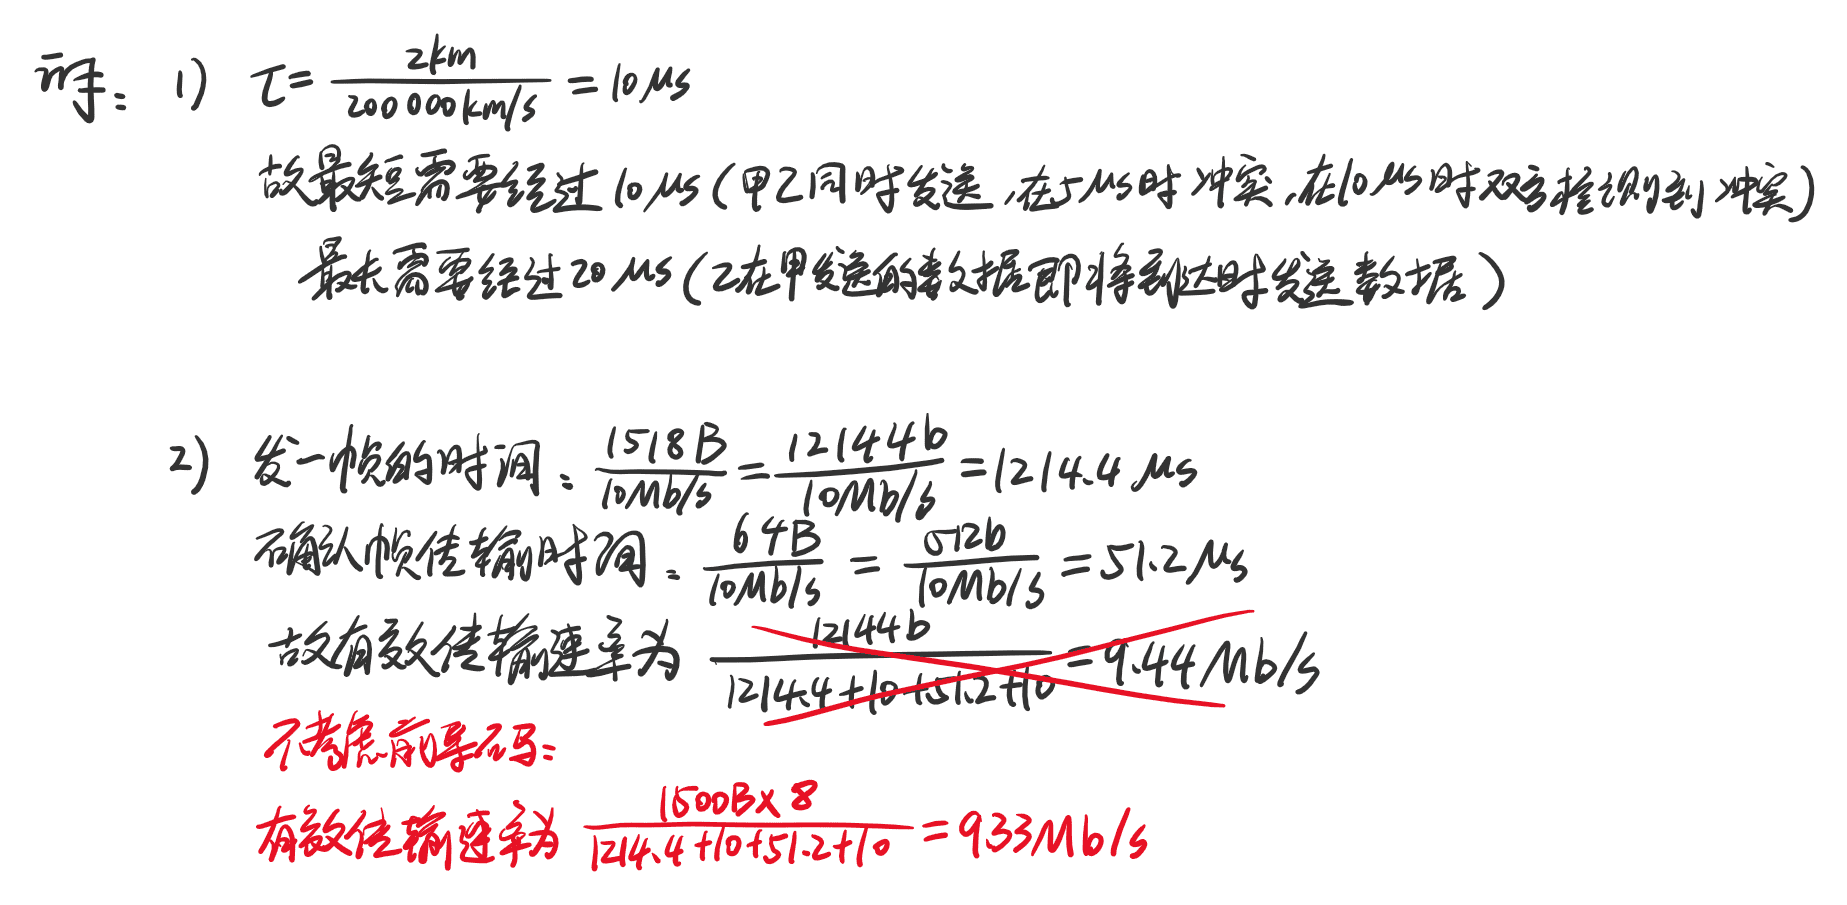 解: 1) τ = 2km / 200000km/s = 10μs
故最短需要经过10μs(甲乙同时发送,在5μs时冲突,在10μs时双方检测到冲突)
最长需要经过20μs(乙在甲发送的数据即将到达时发送数据)
2) 发一帧的时间: 1518B / 10Mb/s = 12144b / 10Mb/s = 1214.4μs
确认帧传输时间: 64B / 10Mb/s = 512b / 10Mb/s = 51.2μs
故有效传输速率为 12144b / 1214.4+10+51.2+10 = 9.44Mb/s
不考虑前导码:
有效传输速率为 1500B×8 / 1214.4+10+51.2+10 = 933Mb/s